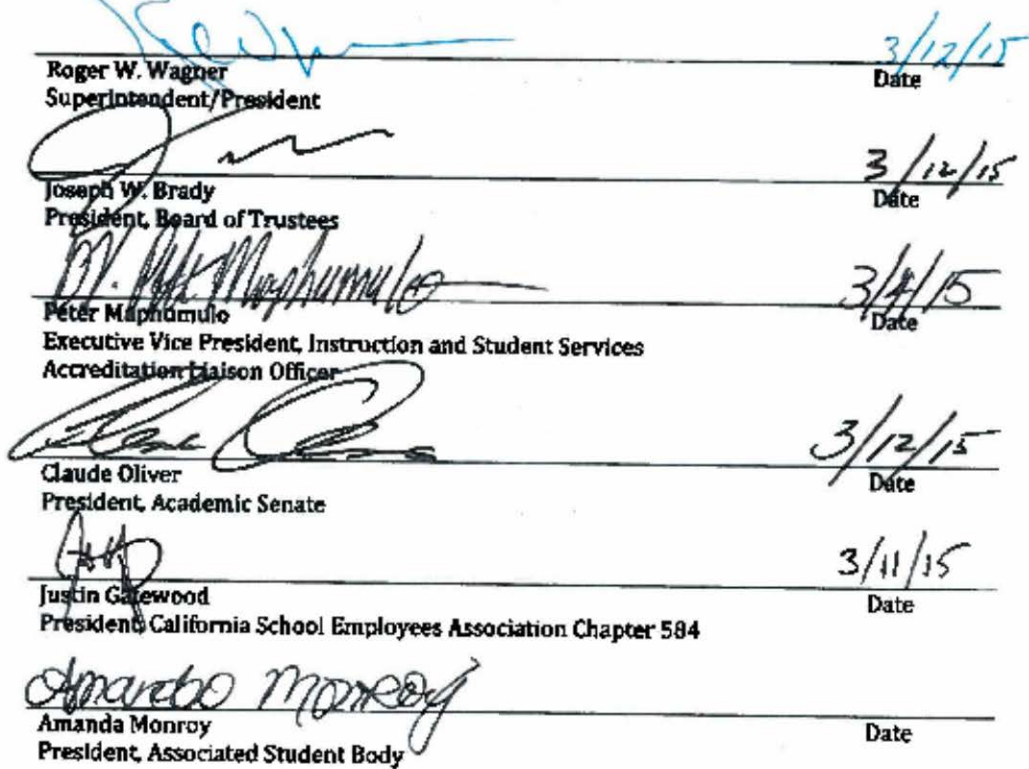 3/12/15
Roger W. Wagner Date
Superintendent/President
3/12/15
Joseph W. Brady Date
President, Board of Trustees
Maphumulo 3/4/15
Peter Maphumulo Date
Executive Vice President, Instruction and Student Services
Accreditation Liaison Officer
3/12/15
Claude Oliver Date
President, Academic Senate
3/11/15
Justin Gatewood Date
President, California School Employees Association Chapter 584
Amanda Monroy
Amanda Monroy Date
President, Associated Student Body